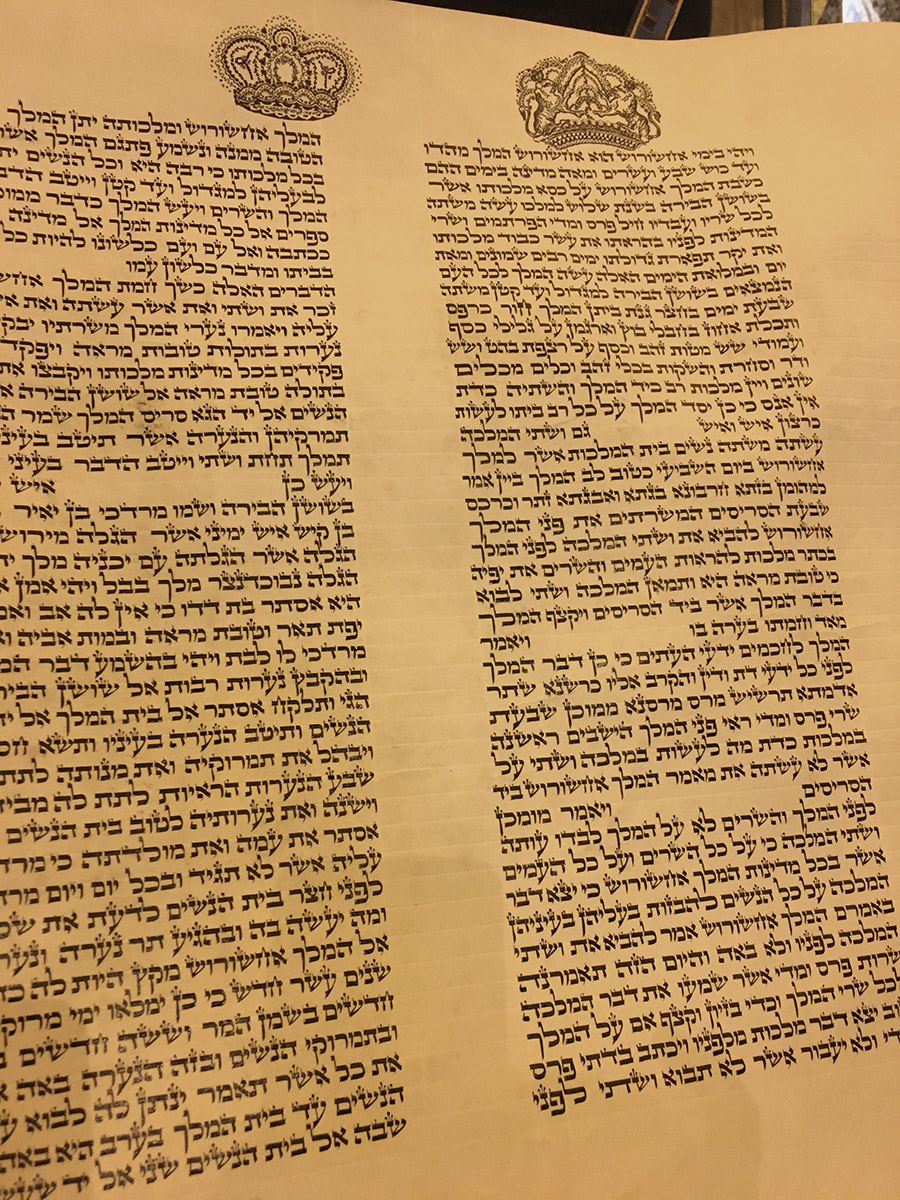 ויהי בימי אחשורוש הוא אחשורוש המלך מהדו
ועד כוש שבע ועשרים ומאה מדינה בימים ההם
כשבת המלך אחשורוש על כסא מלכותו אשר
בשושן הבירה בשנת שלוש למלכו עשה משתה
לכל שריו ועבדיו חיל פרס ומדי הפרתמים ושרי
המדינות לפניו בהראתו את עשר כבוד מלכותו
ואת יקר תפארת גדולתו ימים רבים שמונים ומאת
יום ובמלואת הימים האלה עשה המלך לכל העם
הנמצאים בשושן הבירה למגדול ועד קטן משתה
שבעת ימים בחצר גנת ביתן המלך חור כרפס
ותכלת אחוז בחבלי בוץ וארגמן על גלילי כסף
ועמודי שש מטות זהב וכסף על רצפת בהט ושש
ודר וסחרת והשקות בכלי זהב וכלים מכלים
שונים ויין מלכות רב כיד המלך והשתיה כדת
אין אנס כי כן יסד המלך על כל רב ביתו לעשות
כרצון איש ואיש גם ושתי המלכה
עשתה משתה נשים בית המלכות אשר למלך
אחשורוש ביום השביעי כטוב לב המלך ביין אמר
למהומן בזתא חרבונא בגתא ואבגתא זתר וכרכס
שבעת הסריסים המשרתים את פני המלך
אחשורוש להביא את ושתי המלכה לפני המלך
בכתר מלכות להראות העמים והשרים את יפיה
כי טובת מראה היא ותמאן המלכה ושתי לבוא
בדבר המלך אשר ביד הסריסים ויקצף המלך
מאד וחמתו בערה בו ויאמר
המלך לחכמים ידעי העתים כי כן דבר המלך
לפני כל ידעי דת ודין והקרב אליו כרשנא שתר
אדמתא תרשיש מרס מרסנא ממוכן שבעת
שרי פרס ומדי ראי פני המלך הישבים ראשנה
במלכות כדת מה לעשות במלכה ושתי על
אשר לא עשתה את מאמר המלך אחשורוש ביד
הסריסים ויאמר מומכן
לפני המלך והשרים לא על המלך לבדו עותה
ושתי המלכה כי על כל השרים ועל כל העמים
אשר בכל מדינות המלך אחשורוש כי יצא דבר
המלכה על כל הנשים להבזות בעליהן בעיניהן
באמרם המלך אחשורוש אמר להביא את ושתי
המלכה לפניו ולא באה והיום הזה תאמרנה
שרות פרס ומדי אשר שמעו את דבר המלכה
לכל שרי המלך וכדי בזיון וקצף אם על המלך
יצא דבר מלכות מלפניו ויכתב בדתי פרס
ולא יעבור אשר לא תבוא ושתי לפני
המלך אחשורוש ומלכותה יתן המלך
הטובה ממנה ונשמע פתגם המלך אשר
בכל מלכותו כי רבה היא וכל הנשים
לבעליהן למגדול ועד קטן וייטב
המלך והשרים ויעש המלך כדבר
ספרים אל כל מדינות המלך אל מדינה
ככתבה ואל עם ועם כלשונו להיות כל
בביתו ומדבר כלשון עמו
הדברים האלה כשך חמת המלך
זכר את ושתי ואת אשר עשתה ואת
עליה ויאמרו נערי המלך משרתיו
נערות בתולות טובות מראה ויפקד
פקידים בכל מדינות מלכותו ויקבצו את
בתולה טובת מראה אל שושן הבירה
הנשים אל יד הגא סריס המלך שמר
תמרקיהן והנערה אשר תיטב בעיני
תמלך תחת ושתי וייטב הדבר בעיני
ויעש כן איש
בשושן הבירה ושמו מרדכי בן יאיר
בן קיש איש ימיני אשר הגלה
הגלה אשר הגלתה עם יכניה מלך
הגלה נבוכדנצר מלך בבל ויהי אמן
היא אסתר בת דדו כי אין לה אב ואם
יפת תאר וטובת מראה ובמות אביה
מרדכי לו לבת ויהי בהשמע דבר
ובהקבץ נערות רבות אל שושן
הגי ותלקח אסתר אל בית המלך אל
הנשים ותיטב הנערה בעיניו ותשא
ויבהל את תמרוקיה ואת מנותה לתת
שבע הנערות הראיות לתת לה
וישנה ואת נערותיה לטוב בית הנשים
אסתר את עמה ואת מולדתה כי
עליה אשר לא תגיד ובכל יום ויום
לפני חצר בית הנשים לדעת את
ומה יעשה בה ובהגיע תר נערה
אל המלך אחשורוש מקץ היות לה
שנים עשר חדש כי כן ימלאו ימי
חדשים בשמן המר וששה חדשים
ובתמרוקי הנשים ובזה הנערה באה
את כל אשר תאמר ינתן לה לבוא
הנשים עד בית המלך בערב היא באה
שבה אל בית הנשים שני אל יד